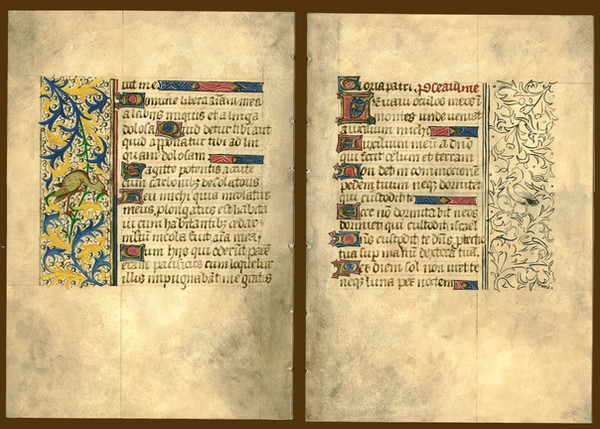 uit me
Domine libera aiam mea
a labiis iniquis et a lingua
dolosa Quid detur tibi aut
quid apponatur tibi ad lin
guam dolosam
Sagitte potentis acute
cum carbonibz desolatoriis
Heu michi quia incolatus
meus plongatus est habita
ui cum habitantibz cedar
multum incola fuit aia mea
Cum hijs qui oderut pacem
eram pacificus cum loquebar
illis impugnabāt me gratis
Gloria patri
Leuaui oculos meos ī
montes unde ueniet
auxilium michi
Auxilium meum a dno
qui fecit celum et terram
Non det in commotionem
pedem tuum neqz dormitet
qui custodit te
Ecce no dormitabit neqz
dormiet qui custodit israel
Dns custodit te dns protectio
tua sup manū dexterā tuā
Per diem sol non uret te
neqz luna per noctem